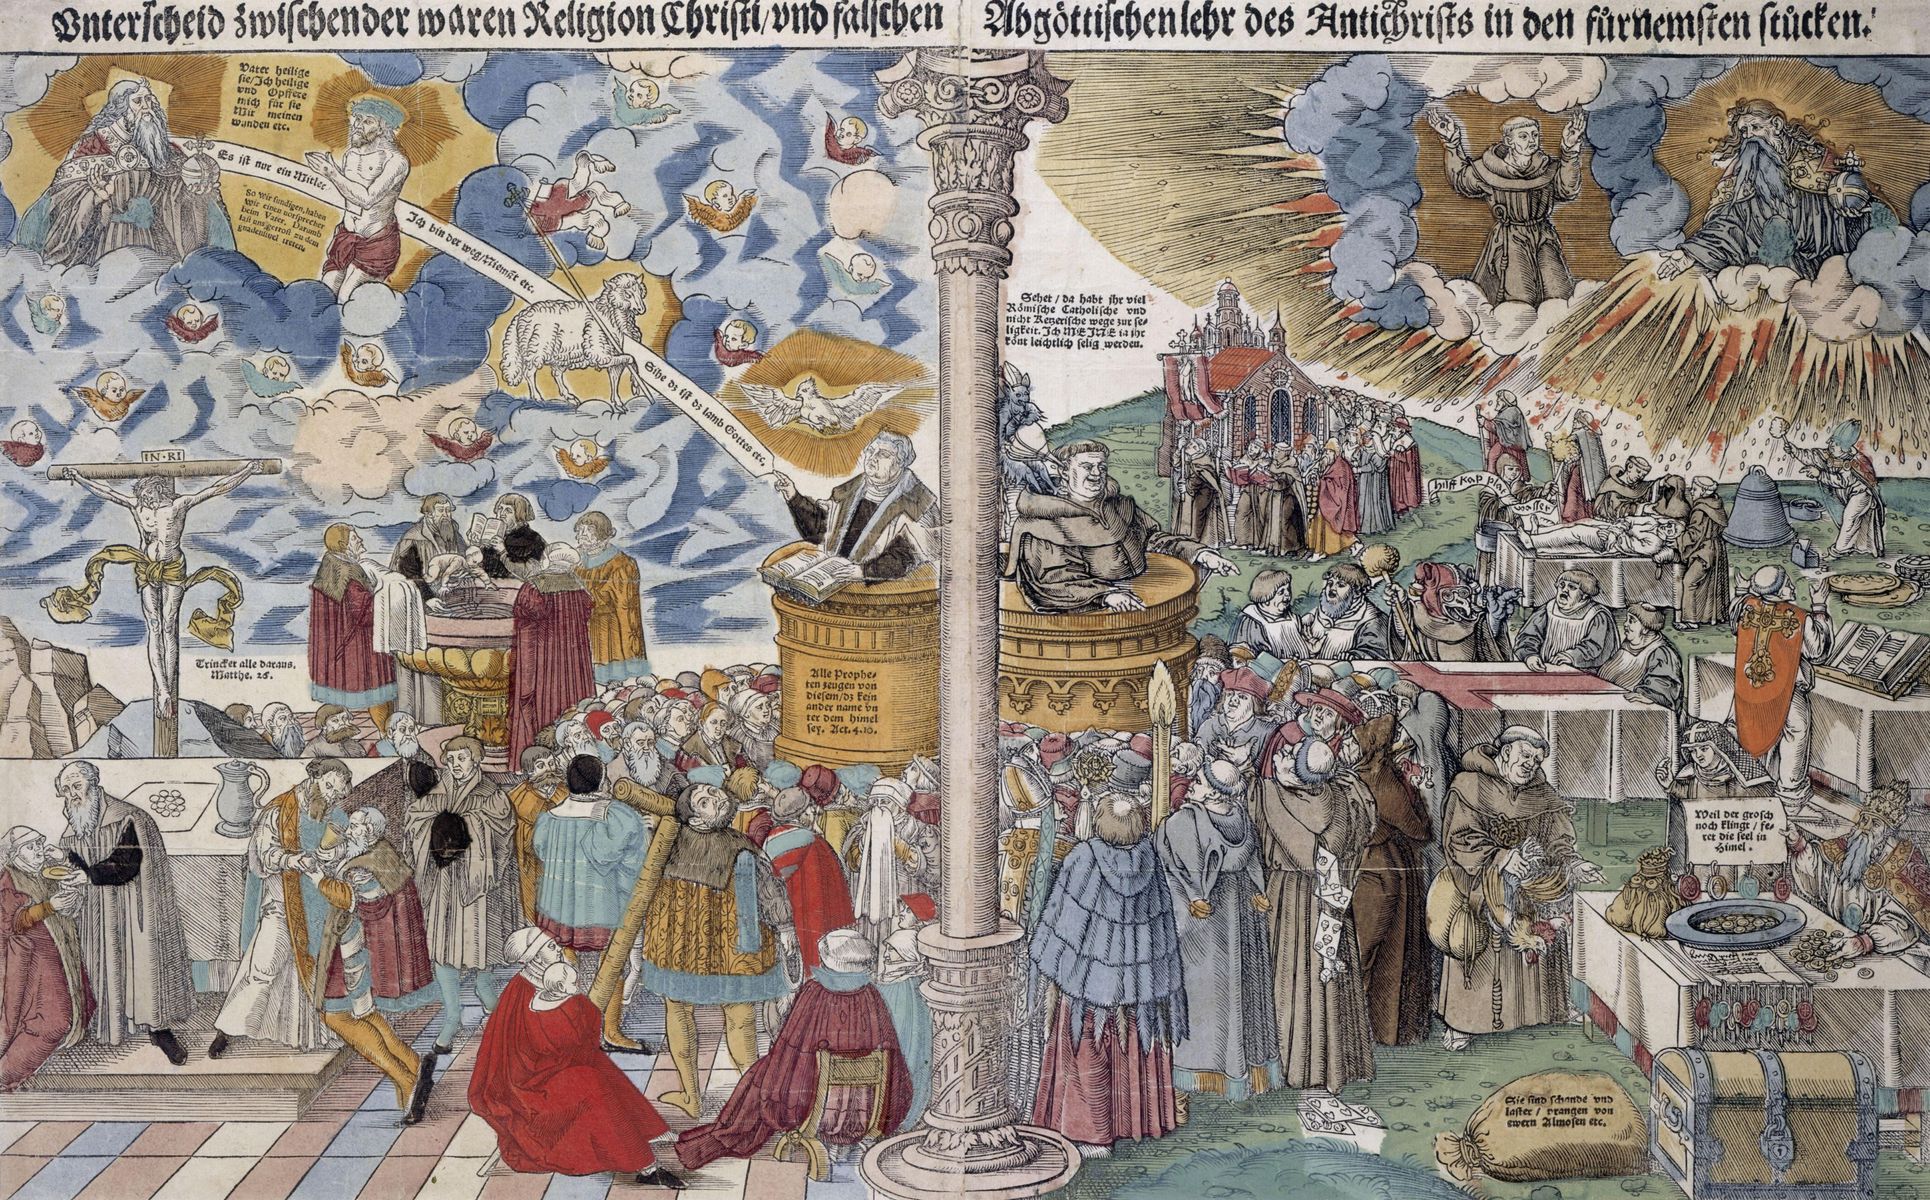 Vnterscheid zwischen der waren Religion Christi/ vnd falschen Abgöttischen lehr des Antichrists in den fürnemsten stücken.
Vater heilige
sie/ Ich heilige
vnd Opffere
mich für sie
Mit meinen
wunden etc.
Es ist nur ein Mitler
So wir sundigen, haben
Wir einen vorsprecher
beim Vater, Darumb
last uns getrost zu dem
gnadenstuel treten
Ich bin der weg/ Niemãt etc.
Sihe dz ist dz lamb Gottes etc.
IN·RI
Trincket alle daraus.
Matthe. 26.
Alle Prophe-
ten zeugen von
diesem/ dz kein
ander name vn
ter dem himel
sey. Act. 4.10.
Sehet/ da habt ihr viel
Römische Catholische vnd
nicht Ketzerische wege zur se-
ligkeit. Ich MEINE ia ihr
könt leichtlich selig werden.
hilff kap plat
wasser
Weil der grosch
noch klingt/ fe-
ret die seel in
Himel.
Sie sind schande vnd
laster/ prangen von
ewern Almosen etc.